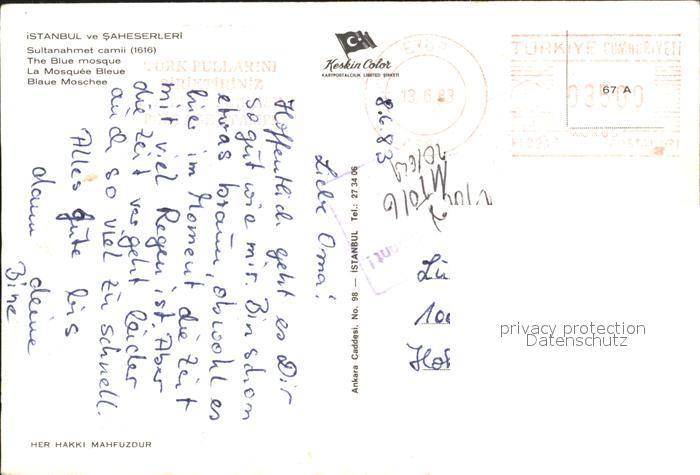 İSTANBUL ve ŞAHESERLERİ
Sultanahmet camii (1616)
The Blue mosque
La Mosquée Bleue
Blaue Moschee
TÜRK PULLARINI
BİRİKTİRİNİZ
Keskin Color
KARTPOSTALCILIK LIMITED ŞİRKETİ
13.6.83
TÜRKİYE CUMHURİYETİ
03500
67 A
8.6.83
Liebe Oma!
Hoffentlich geht es Dir
so gut wie mir. Bin schon
etwas braun, obwohl es
hier im Moment die Zeit
mit viel Regen ist. Aber
die Zeit vergeht leider
auch so viel zu schnell.
Alles Gute bis
dann deine
Bine
Ankara Caddesi, No. 98 — İSTANBUL Tel.: 27 34 06
privacy protection
Datenschutz
HER HAKKI MAHFUZDUR